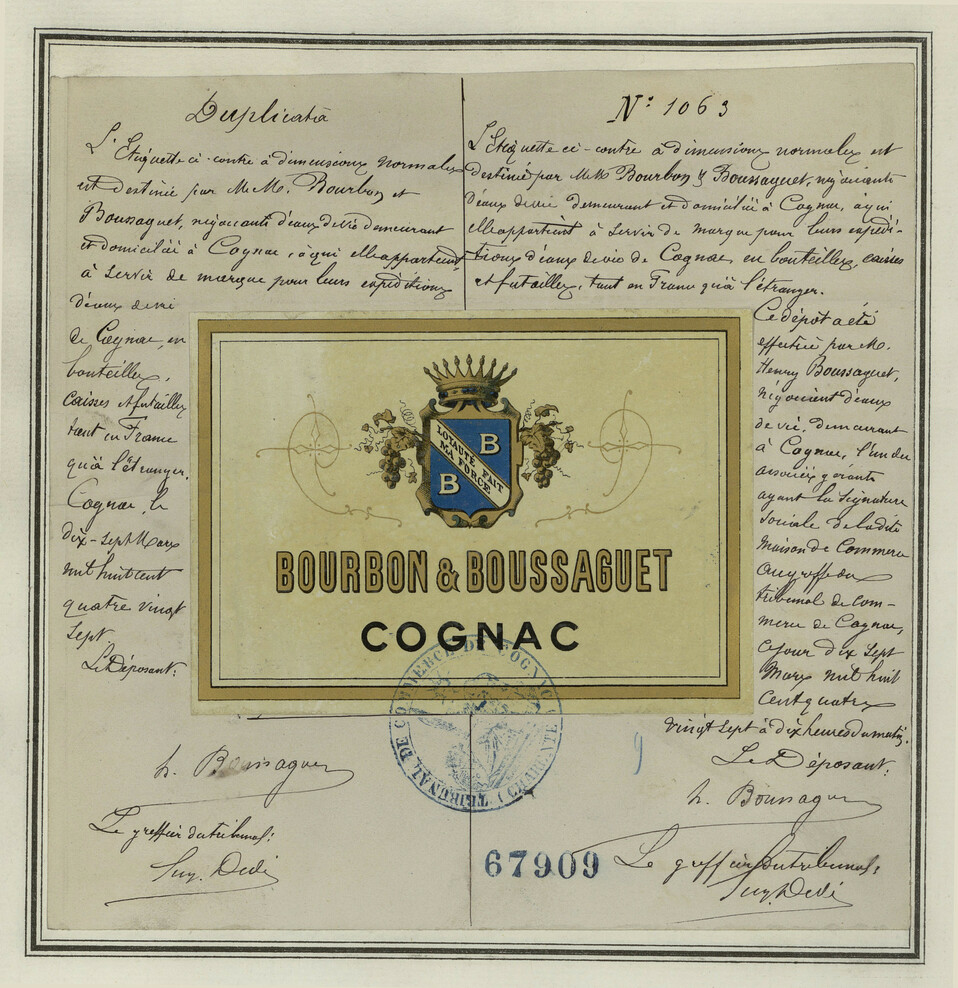 Duplicata
L'Etiquette ci-contre à dimensions normales
est destinée par M.M. Bourbon et
Boussaguet, négociants d'eaux de vie demeurant
et domiciliés à Cognac, à qui elle appartient
à servir de marque pour leurs expéditions
d'eaux de vie
de Cognac, en
bouteilles,
caisses et futailles
tant en France
qu'à l'étranger.
Cognac, le
dix-sept Mars
mil huit cent
quatre vingt
sept.
Le Déposant:
h. Boussaguet
Le greffier du tribunal:
N° 1063
L'Etiquette ci-contre à dimensions normales est
destinée par M.M. Bourbon & Boussaguet, négociants
d'eaux de vie demeurant et domiciliés à Cognac, à qui
elle appartient à servir de marque pour leurs expédi-
tions d'eaux de vie de Cognac, en bouteilles, caisses
et futailles, tant en France qu'à l'étranger.
Ce dépôt a été
effectué par M.
Henry Boussaguet,
négociant d'eaux
de vie, demeurant
à Cognac, l'un des
associés gérants
ayant la signature
sociale de la dite
Maison de Commerce
au greffe du
tribunal de Com-
merce de Cognac,
ce jour dix sept
Mars mil huit
cent quatre
vingt sept à dix heures du matin.
Le Déposant:
h. Boussaguet
Le greffier du tribunal:
LOYAUTÉ FAIT
MA FORCE
B
B
BOURBON & BOUSSAGUET
COGNAC
TRIBUNAL DE COMMERCE DE COGNAC (CHARENTE)
67909